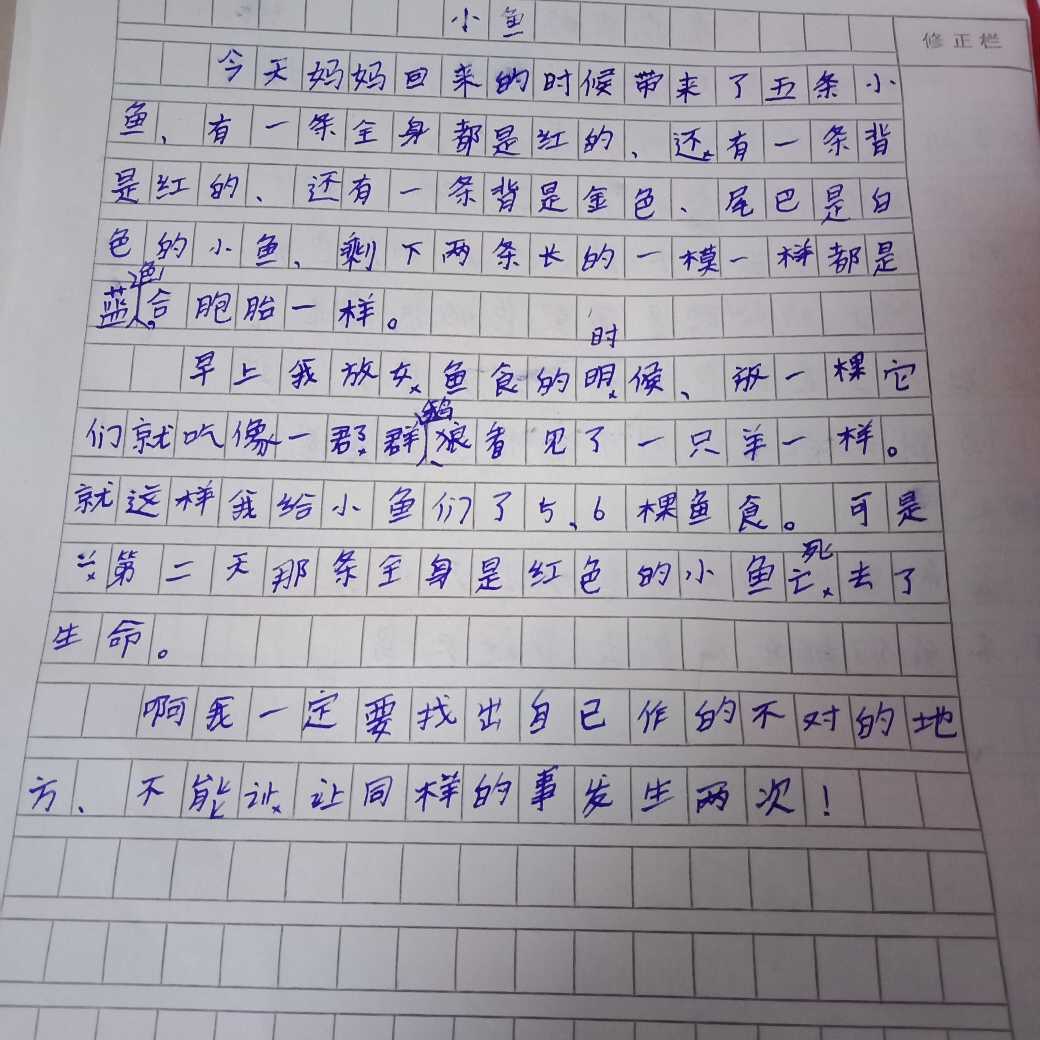 小鱼
修正栏
今天妈妈回来的时候带来了五条小
鱼、有一条全身都是红的、还有一条背
是红的、还有一条背是金色、尾巴是白
色的小鱼、剩下两条长的一模一样都是
蓝色合胞胎一样。
早上我放鱼食的时候、放一棵它
们就吃像一群饿狼看见了一只羊一样。
就这样我给小鱼们了5、6棵鱼食。可是
第二天那条全身是红色的小鱼死去了
生命。
啊我一定要找出自己作的不对的地
方、不能让同样的事发生两次!